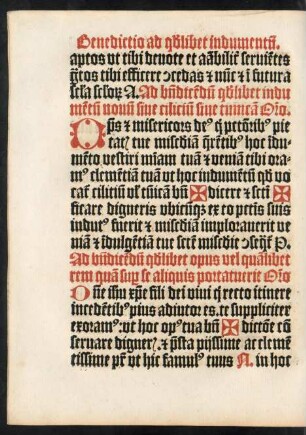 Benedictio ad qdlibet indumentū.
aptos vt tibi deuote et aābilit̄ seruiētes
grōs tibi efficere ↄcedas ⁊ nūc ⁊ ī futura
scla scloꝝ A. Ad bñdicēdū qdlibet indu
mētū nouū siue ciliciū siue tunicā Oro.
Ops ⁊ misericors deꝰ q̄ pctoribꝰ pie
tatꝭ tue misediā q̄rētibꝰ hoc īdu
mēto vestiri miam tuā ⁊ veniā tibi ora
mꝰ clemētiā tuā vt hoc indumētū qd vo
catꝭ ciliciū vl tūicā bñ✠dicere ⁊ scti✠
ficare digneris vbicūqꝫ ex eo pctens̄ suis
indutꝰ fuerit ⁊ misediā implorauerit ve
niā ⁊ īdulgētiā tue scte misedie ↄseq̄t P.
Ad bñdicēdū qdlibet opus vel qualibet
rem quā sup se aliquis portauerit Oro
Dñe ihu xp̄e fili dei viui q recto itinere
incedētibꝰ pius adiutor es. te suppliciter
exoramꝰ: vt hoc opꝰ tua bñ✠dictōe cō
seruare digneꝝ. ⁊ p̄sta piissime ac cleme
tissime pr̄ vt hic famulꝰ tuus N. in hoc